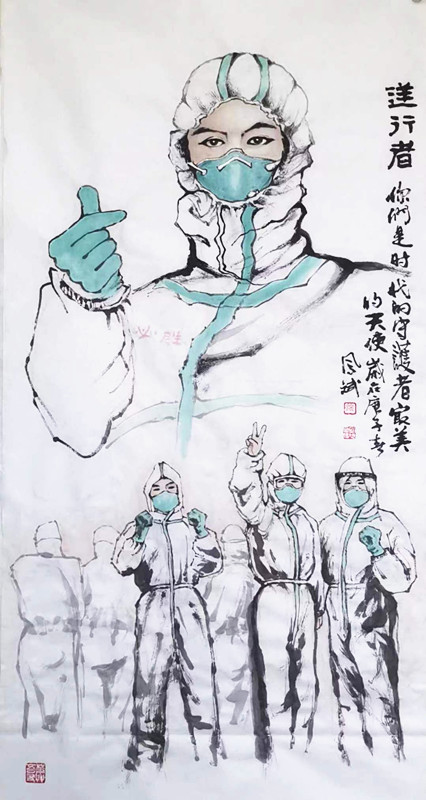 逆行者
你們是时代的守護者最美
的天使 歲在庚子春
必胜